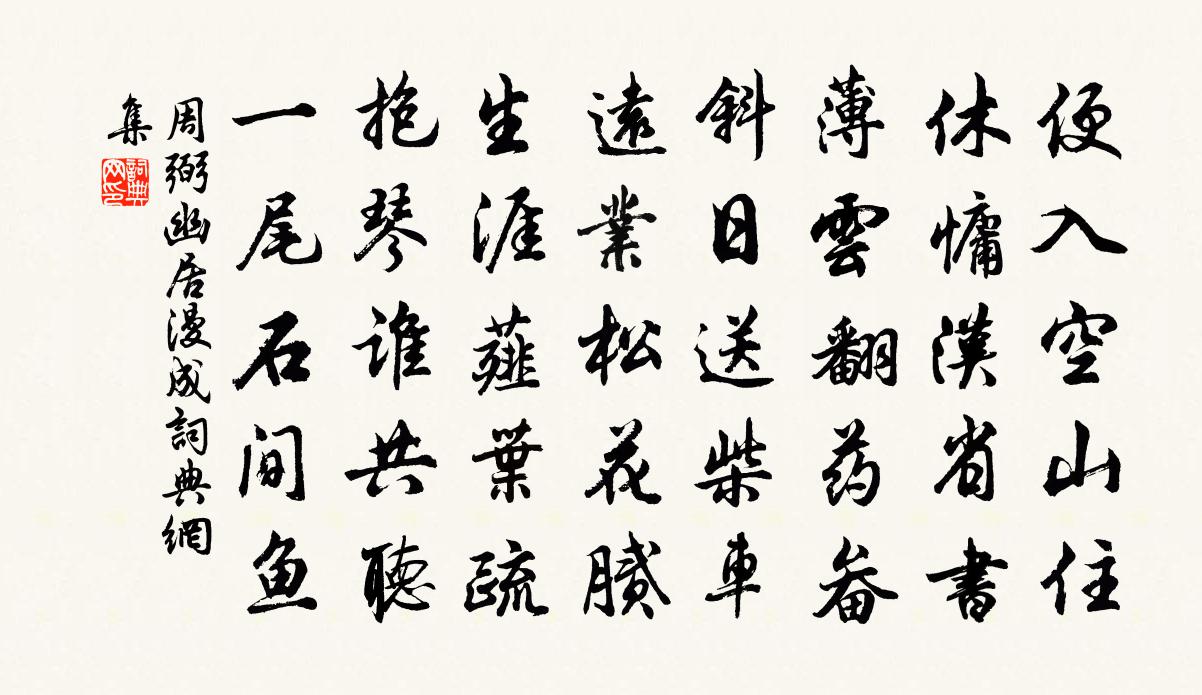 便入空山住
休慵漢省書
薄雲翻药畚
斜日送柴車
遠業松花膩
生涯薤葉疏
抱琴誰共聽
一尾石间魚
周弼幽居漫成詞典網
集
詞典
网印